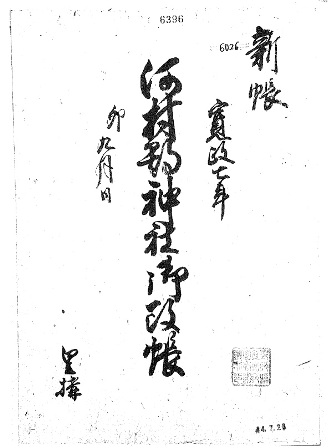 6396
6026
新帳
寛政七年
河村郡神社御改帳
卯九月日
44.7.28